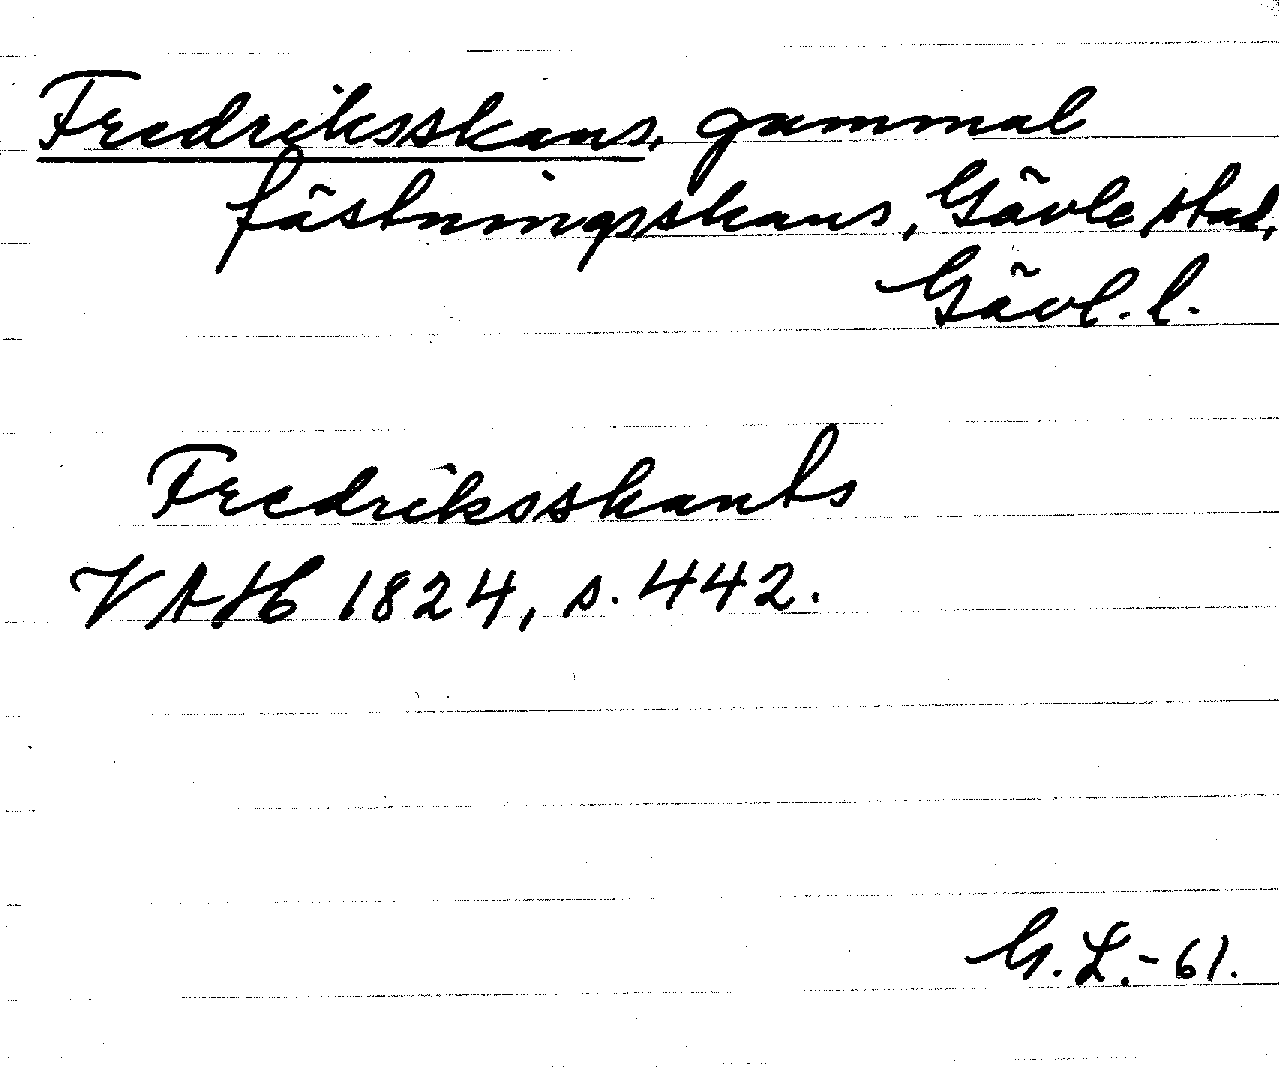 Fredriksskans, gammal
fästningsskans, Gävle stad,
Gävl. l.
Fredriksskants
VAH 1824, s. 442.
G. L. - 61.